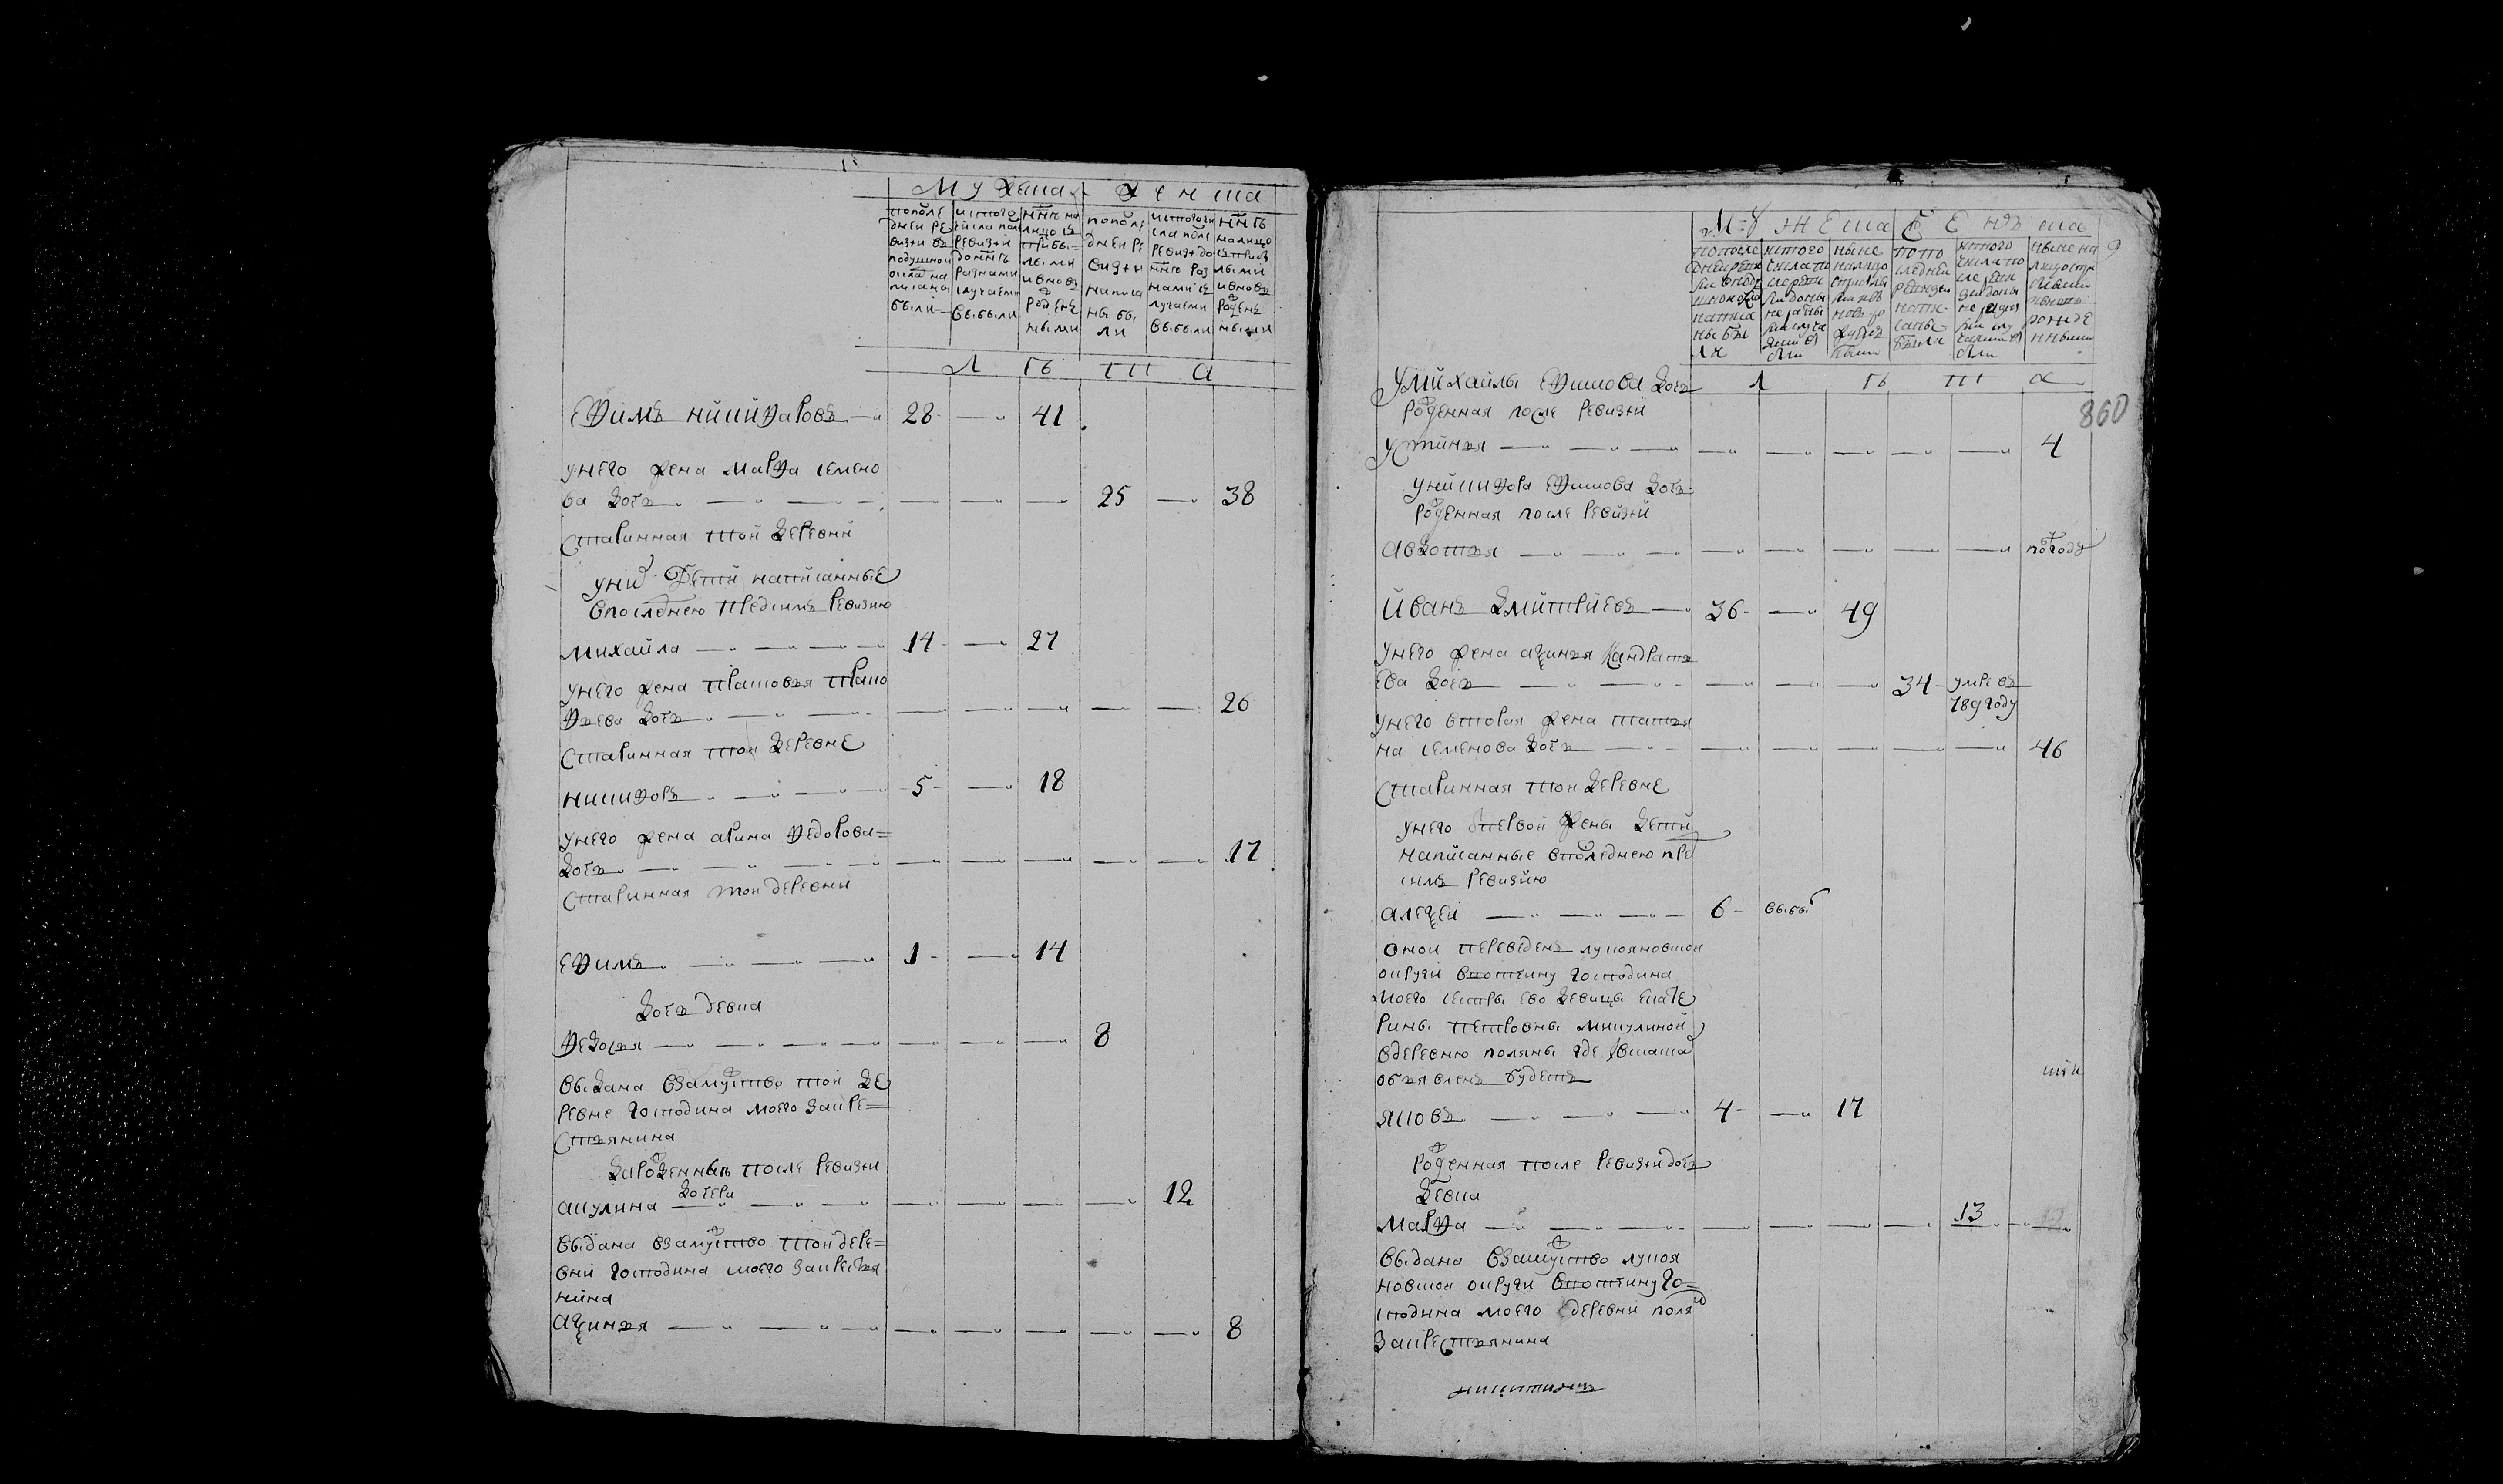 Мужеска
Женска
пополе
дней ре
визии въ
подушной
окладъ на
писаны
были
истого
числа пол
ревизии
до ннѣ
разными
случаеми
выбыли
ннѣ на
лицо съ
прибы=
лыми
и вновь
рожден
ными
пополе
дней ре
визии
написа
ны бы
ли
истогочи
сла поле
ревизи до
ннѣ раз
ными сл
лучаеми
выбыли
ннѣ
налицо
сприбы
лыми
и вновь
рожден
ными
Л ѣ т а
Ефимъ никифаровъ 28 41
унего жена марфа семено
ва дочь 25 38
старинная той деревни
уних дети написанные
впоследнею предсимъ ревизию
михайла 14 27
унего жена прасковья проко
фьева дочь 26
старинная той деревне
никифоръ 5 18
унего жена арина федорова=
дочь 17
старинная той деревни
ефимъ 1 14
дочь девка
федосья 8
выдана взамужство той де
ревне господина моего закре=
стьянина
Зарожденныя после ревизии
дочери
акулина 12
выдана взамужство той дере=
вни господина моего закрестья
нина
аксинья 8
Мужеска Женска
попосле
дней реви
зии вподу
шной окла
написа
ны бы
ли
истого
числа по
следней
ревизии доны
не разны
ми случа
ями вы
были
ныне
налицо
сприбылы
ми и вновь
рожден
ными
по по
следней
ревизии
напи-
саны
были
истого
числа по
следней
ревизии доны
не разны
ми случа
ями вы
были
ныне на
лицо спри
былыми
и вновь
рожде
нными
9
Л ѣ т а
860
умихайлы ефимова дочь
рожденная после ревизии
устинья 4
уникифора ефимова дочь
рожденная после ревизии
авдотья полгоду
Иванъ дмитриевъ 36 49
унего жена аксинья кандрать
ева дочь 34 умре въ
789 году
унего вторая жена татья
на семенова дочь 46
старинная той деревне
унего отпервой жены дети
написанные впоследнею пре
симъ ревизию
алексей 6 выбы
оной переведенъ лукояновской
округиввотчину господина
моего сестры ево девицы екате
рины петровны микулиной
вдеревню поляны где
объявленъ будетъ
яковъ 4 17
рожденная после ревизии дочь
девка
марфа 13
выдана взамужство лукоя
новской округи ввотчину го=
сподина моего деревни поля
закрестьянина